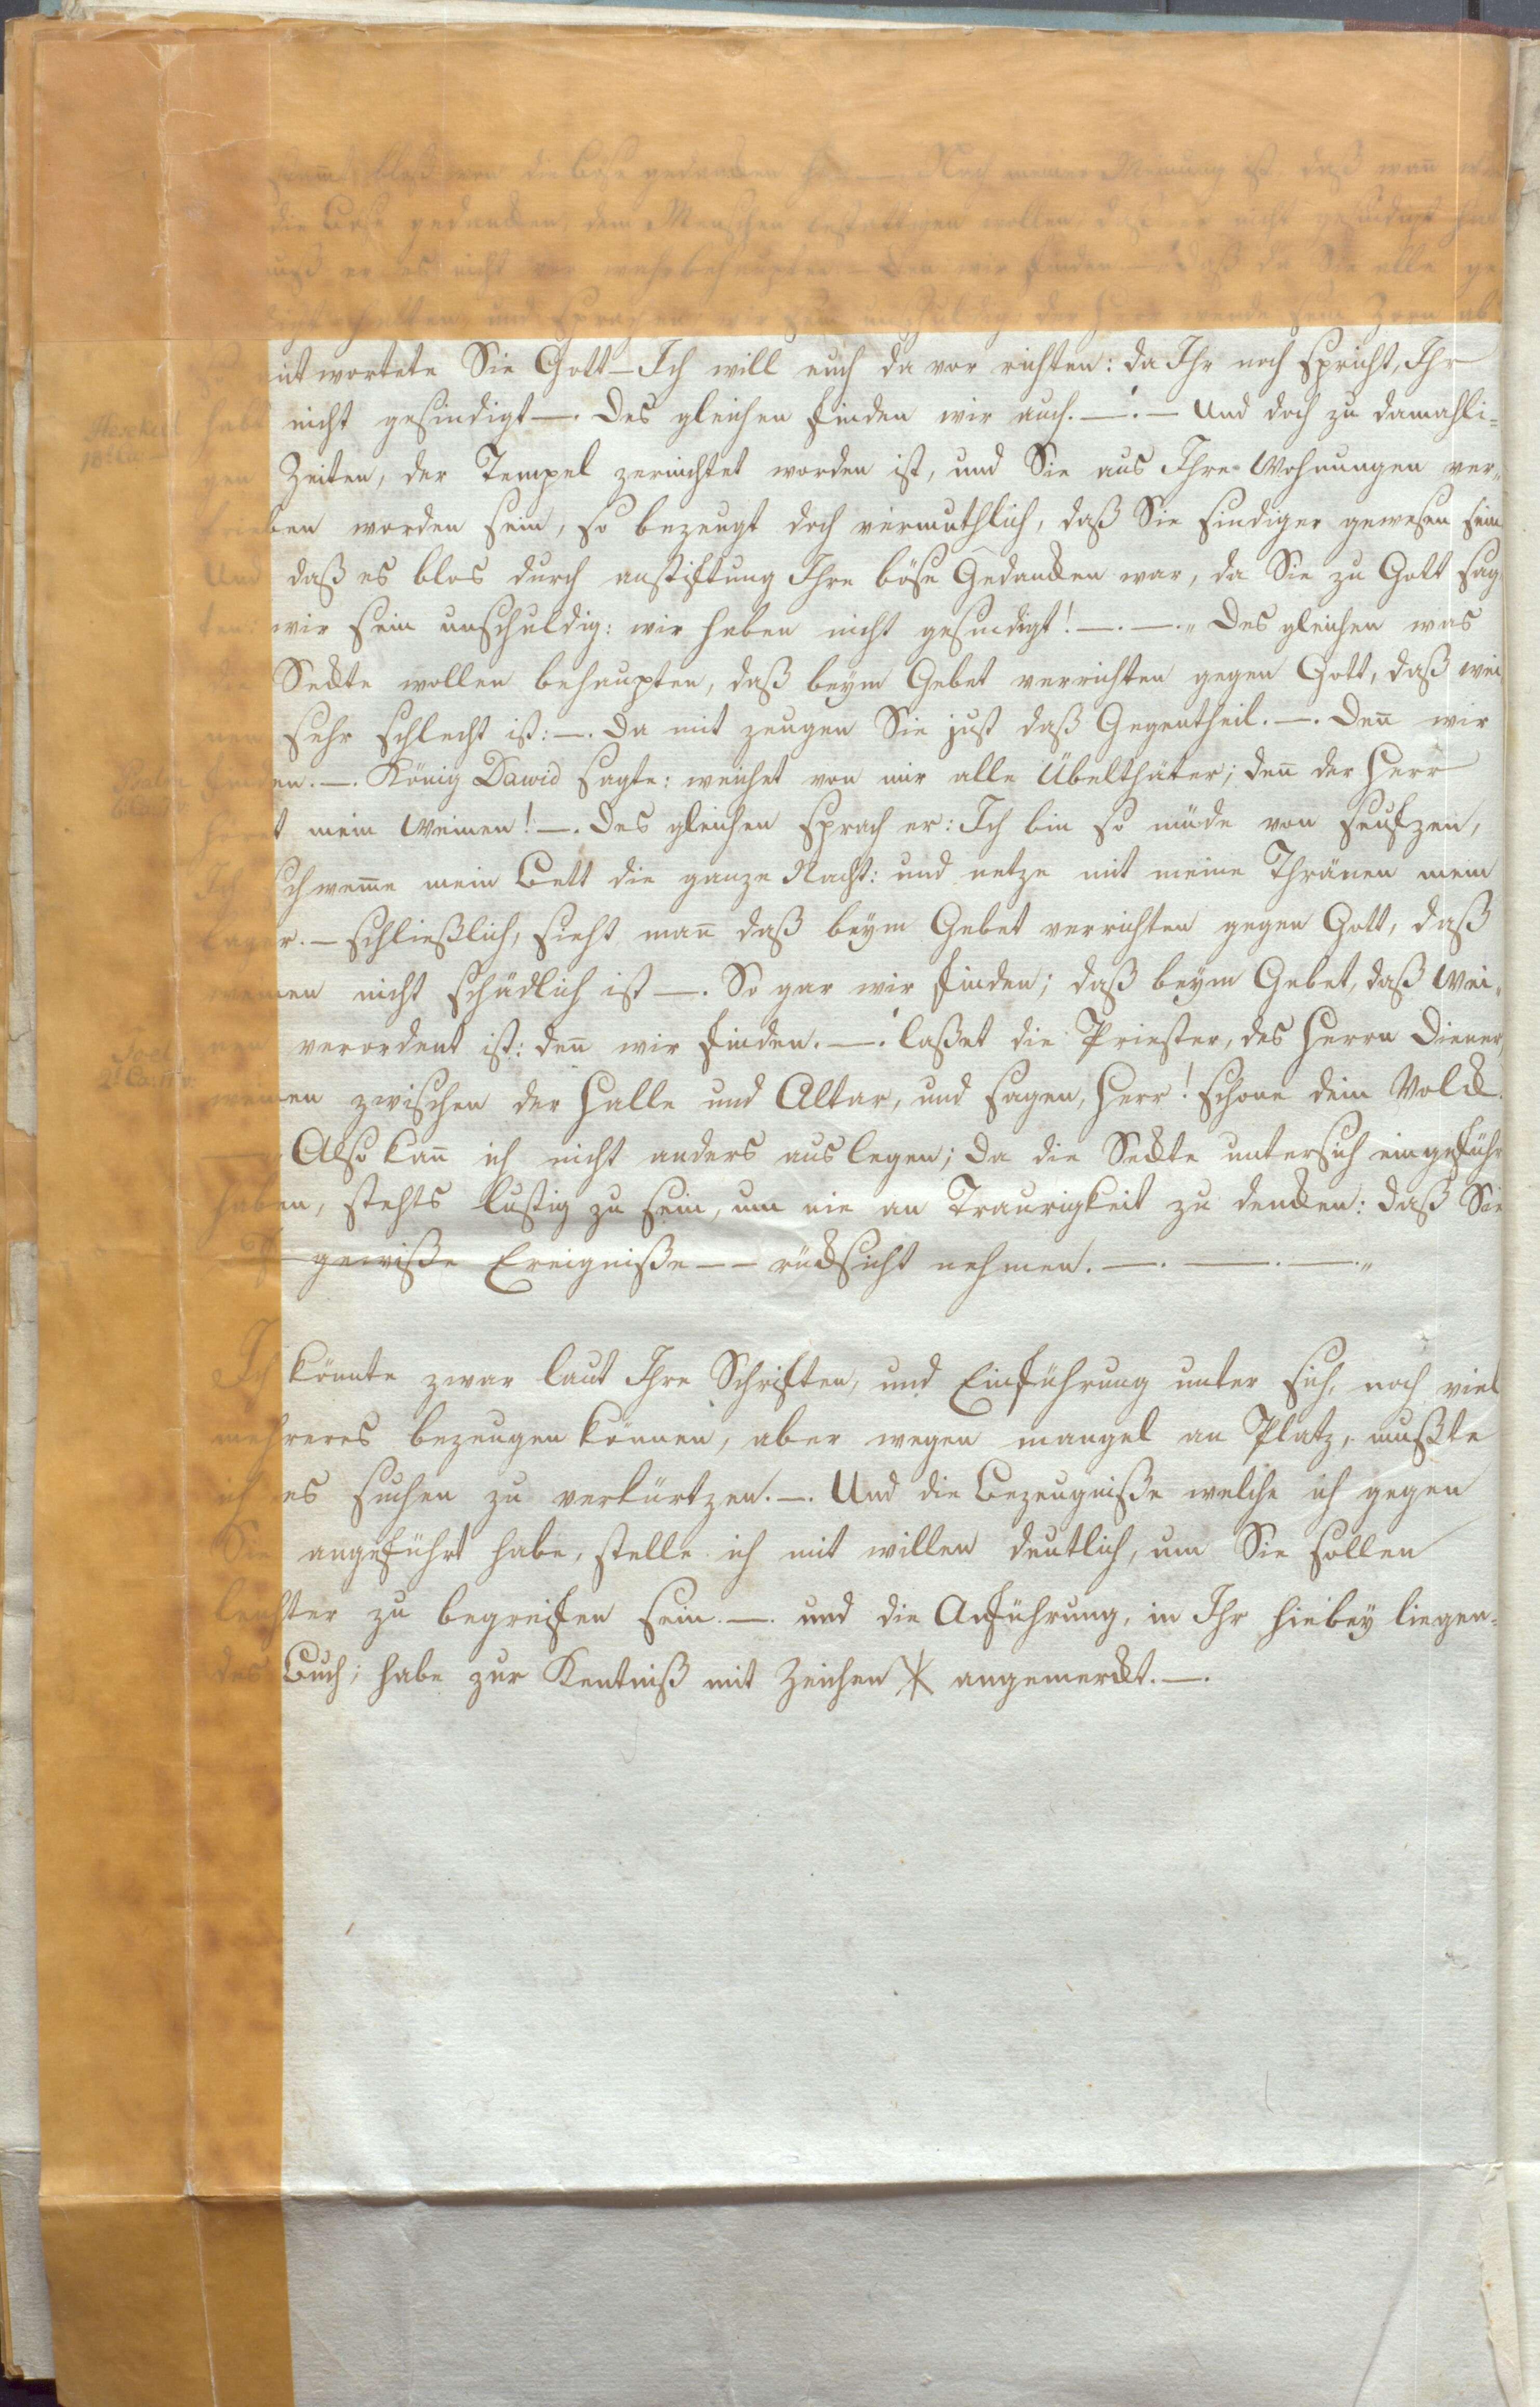 die böse gedancken, dem Menschen bestättigen wollen, daß er nicht gesindigt hat
muß er es nicht vor wahr behaupten – Den wir finden – daß da Sie alle ge
und sprachen wir sein unschuldig: der Herr wende sein Zorn ab
antwortete Sie Gott – Ich will euch da vor richten: da Ihr noch spricht, Ihr
habt nicht gesindigt —. Des gleichen finden wir auch. —. — Und doch zu damahli=
gen Zeiten, der Tempel zernichtet worden ist, und Sie aus Ihre Wohnungen ver„
trieben worden sein, so bezeugt doch vermuthlich, daß Sie sindiger gewesen sein
Und daß es blos durch anstiftung Ihre böse Gedancken war, da Sie zu Gott sag
ten: wir sein unschuldig: wir haben nicht gesindigt! —. —. „ Des gleichen was
die Seckte wollen behaupten, daß beym Gebet verrichten gegen Gott, daß wei
nen sehr schlecht ist: —. Da mit zeugen Sie just daß Gegentheil. —. Den̄ wir
Psalm
finden. —. König Dawid sagte: weichet von mir alle Übelthäter; den̄ der Herr
höret mein Weinen! —. Des gleichen sprach er: Ich bin so müde von seufzen,
Ich schwem̄e mein Bett die ganze Nacht: und netze mit meine Thränen mein
lager. — schließlich, sieht man̄ daß beym Gebet verrichten gegen Gott, daß
weinen nicht schädlich ist —. So gar wir finden; daß beym Gebet, daß Wei„
Joel
2t Ca: 17 v:
nen verordent ist: den̄ wir finden. —. laßet die Priester, des Herrn Diener,
weinen zwischen der Halle und Altar, und sagen, Herr! schone dein Volck.
—. Also kan̄ ich nicht anders auslegen; Da die Seckte untersich eingeführ
haben, stehts lustig zu sein, um nie an Traurigkeit zu dencken: daß Sie
gewiße Ereigniße — — rücksicht nehmen. —. —. —. „
Ich könnte zwar laut Ihre Schriften, und Einführung unter sich, noch viel
mehreres bezeugen können, aber wegen mangel an Platz, mußte
ich es suchen zu verkürtzen. —. Und die Bezeugniße welche ich gegen
Sie angeführt habe, stelle ich mit willen deutlich, um Sie sollen
leuchter zu begreifen sein. —. und die Anführung, in Ihr hiebey liegen=
des Buch; habe zur Kentniß mit Zeichen * angemerckt. —.